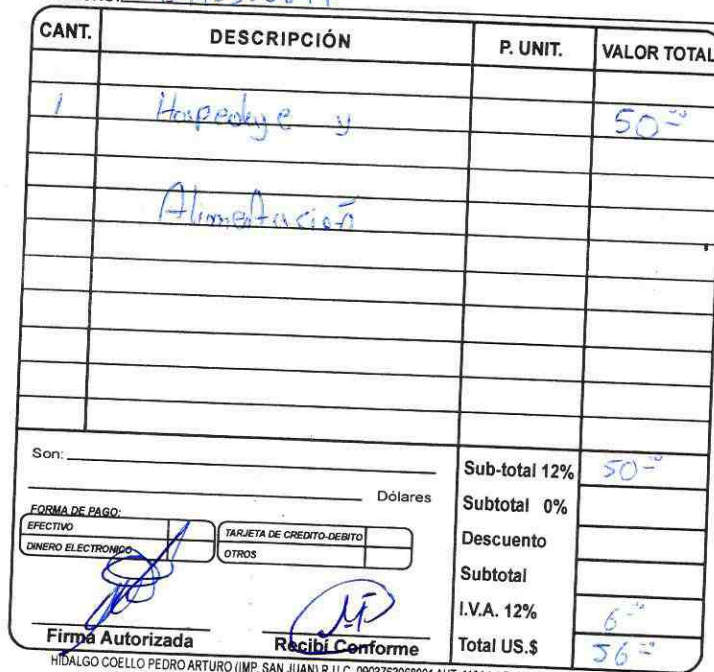 CANT. DESCRIPCIÓN P. UNIT. VALOR TOTAL
1 Hospedaje y 50.00
Alimentación
Son:
Dólares
FORMA DE PAGO:
EFECTIVO
DINERO ELECTRONICO
TARJETA DE CREDITO-DEBITO
OTROS
Sub-total 12% 50.00
Subtotal 0%
Descuento
Subtotal
I.V.A. 12% 6.00
Total US.$ 56.00
Firma Autorizada Recibí Conforme
HIDALGO COELLO PEDRO ARTURO (IMP. SAN JUAN) R.U.C.